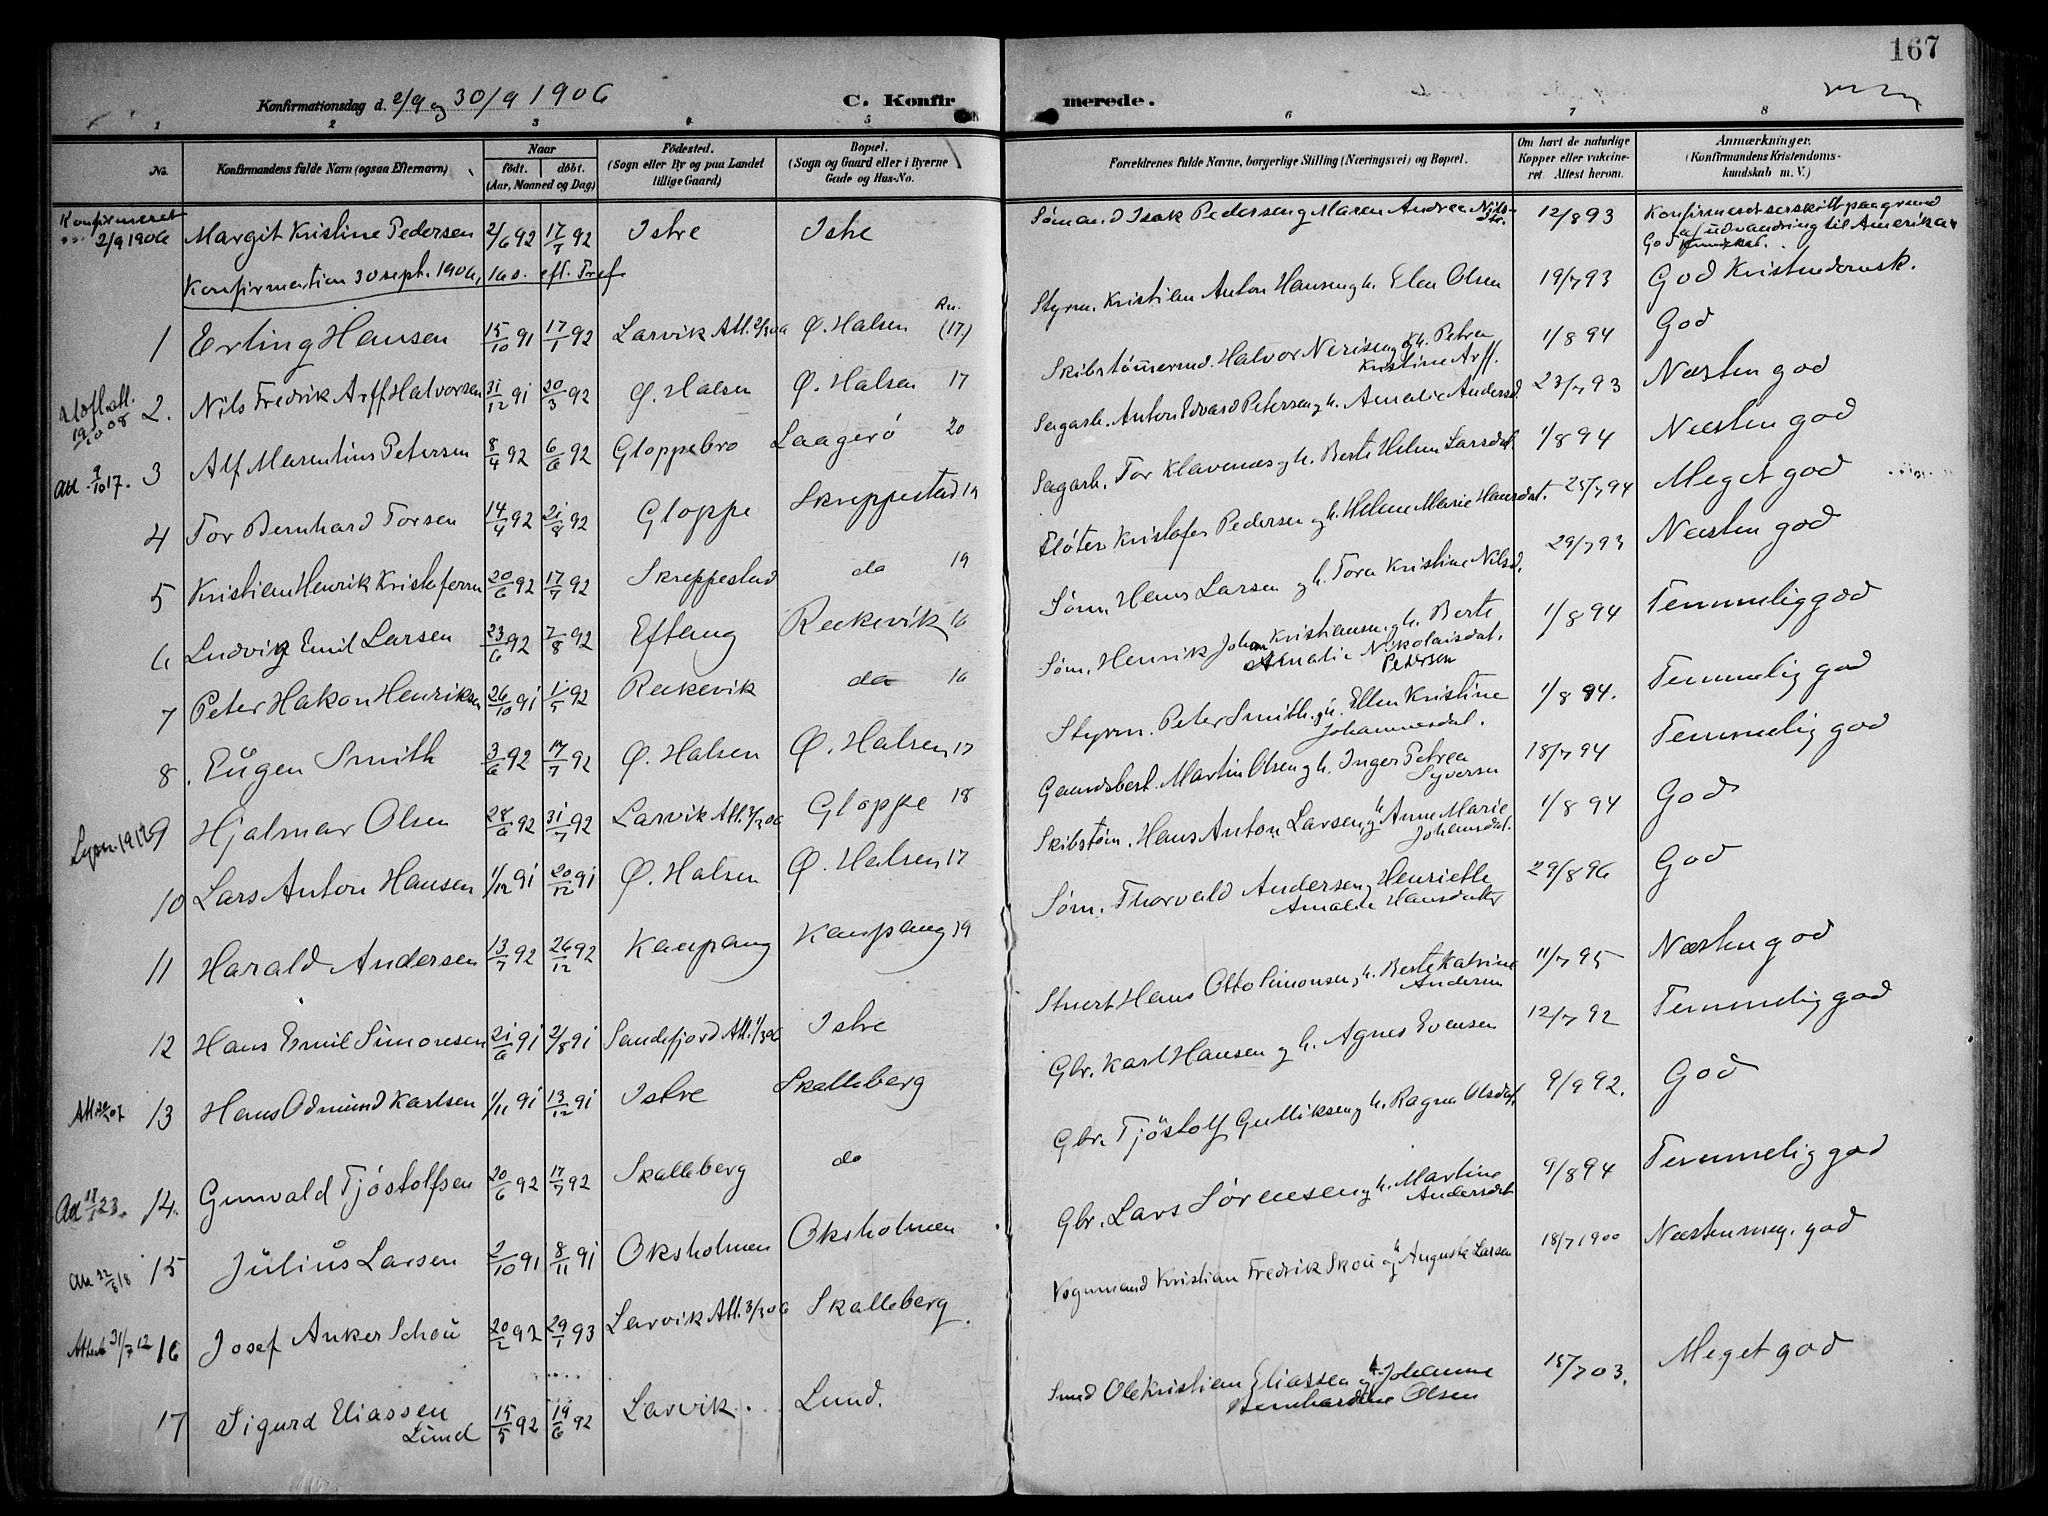 167
Konfirmationsdag d. 2/9 og 30/9 1906
C. Konfirmerede.
1 2 3 4 5 6 7 8
No.
Konfirmandens fulde Navn (ogsaa Efternavn)
Naar
födt. döbt.
(Aar, Maaned og Dag)
Födested.
(Sogn eller By og paa Landet tillige Gaard)
Bopæl.
(Sogn og Gaard eller i Byerne Gade og Hus-No.
Forældrenes fulde Navne, borgerlige Stilling (Næringsvei) og Bopæl.
Om havt de naturlige Kopper eller vakcineret. Attest herom.
Anmærkninger.
(Konfirmandens Kristendomskundskab m. V.)
Konfirmeret 2/9 1906 Margit Kristine Pedersen 2/6 92 17/7 92 Istre Istre Sömand Isak Pedersen og Maren Andrea Nilsdtr. 12/8 93 Konfirmeret særskilt paa grund af udvandring til Amerika. God kundskab.
Konfirmation 30 sept. 1906, 16 s. eft. Tref.
1 Erling Hansen 15/10 91 17/1 92 Larvik Att. 2/3 06 Ø. Halsen (17) Styrm. Kristian Anton Hansen og h. Elen Olsen 19/7 93 God Kristendomsk.
2. Nils Fredrik Arff Halvorsen 31/12 91 20/3 92 Ø. Halsen Ø. Halsen 17 Skibstömermd. Halvor Nerisen og h. Petra Kristine Arff. 1/8 94 God
3 Alf Marentius Petersen 8/4 92 6/6 92 Gloppebro Laagerö 20 Sagarb. Anton Edvard Petersen og h. Amalie Andersd. 23/7 93 Næsten god
4 Tor Bernhard Torsen 14/4 92 21/8 92 Gloppe Skreppestad 19 Sagarb. Tor Klavenæs og h. Berte Helene Larsdat. 1/8 94 Næsten god
5 Kristian Henrik Kristofersen 20/6 92 17/7 92 Skreppestad do 19 Flöter Kristofer Pedersen og h. Helene Marie Hansdat. 25/7 94 Meget god
6 Ludvig Emil Larsen 23/6 92 7/8 92 Eftang Rekkevik 16 Söm. Hans Larsen og h. Tora Kristine Nilsd. 29/7 93 Næsten god
7 Peter Hakon Henriksen 26/10 91 1/5 92 Rekkevik do 16 Söm. Henrik Johan Kristiansen og h. Berte Amalie Nikolaisdat. Petersen 1/8 94 Temmelig god
8. Eugen Smith 3/6 92 17/7 92 Ø. Halsen Ø. Halsen 17 Styrm. Peter Smith og h. Ellen Kristine Johannesdat. 1/8 94. Temmelig god
9 Hjalmar Olsen 28/6 92 31/7 92 Larvik Att. 3/3 06 Gloppe 18 Gaardsbest. Martin Olsen og h. Inger Petrea Syversen 18/7 94 Temmelig god
10 Lars Anton Hansen 1/12 91 20/12 91 Ø. Halsen Ø. Halsen 17 Skibstöm. Hans Anton Larsen og h. Anne Marie Johansdat. 1/8 94 God
11 Harald Andersen 13/7 92 26/12 92 Kaupang Kaupang 19 Söm. Thorvald Andersen og Henriette Amalie Hansdatter 29/8 96 God
12 Hans Emil Simonsen 21/6 91 2/8 91 Sandefjord Att. 1/3 06 Istre Stuert Hans Otto Simonsen og h. Berte Katrine Andersen 11/7 95 Næsten god
13 Hans Odmund Karlsen 1/11 91 13/12 91 Istre Skalleberg Gbr. Karl Hansen og h. Agnes Evensen 12/7 92 Temmelig god
Att 18/1 23. 14. Gunvald Tjöstolfsen 20/6 92 17/7 92 Skalleberg do Gbr. Tjöstolf Gulliksen og h. Ragna Olsdat. 9/9 92. God
15 Julius Larsen 2/10 91 8/11 91 Oksholmen Oksholmen Gbr. Lars Sörensen og h. Martine Andersdat 9/8 94 Temmelig god
Attest 31/7 12 16 Josef Anker Schou 20/2 92 29/1 93 Larvik Att. 3/3 06 Skalleberg. Vognmand Kristian Fredrik Skou og h. Auguste Larsen 18/7 1900 Næsten meg. god
17 Sigurd Eliassen Lund 15/5 92 19/6 92 Larvik. Lund. Smed Ole Kristian Eliassen og h. Johanne Bernhardine Olsen 15/7 03. Meget god